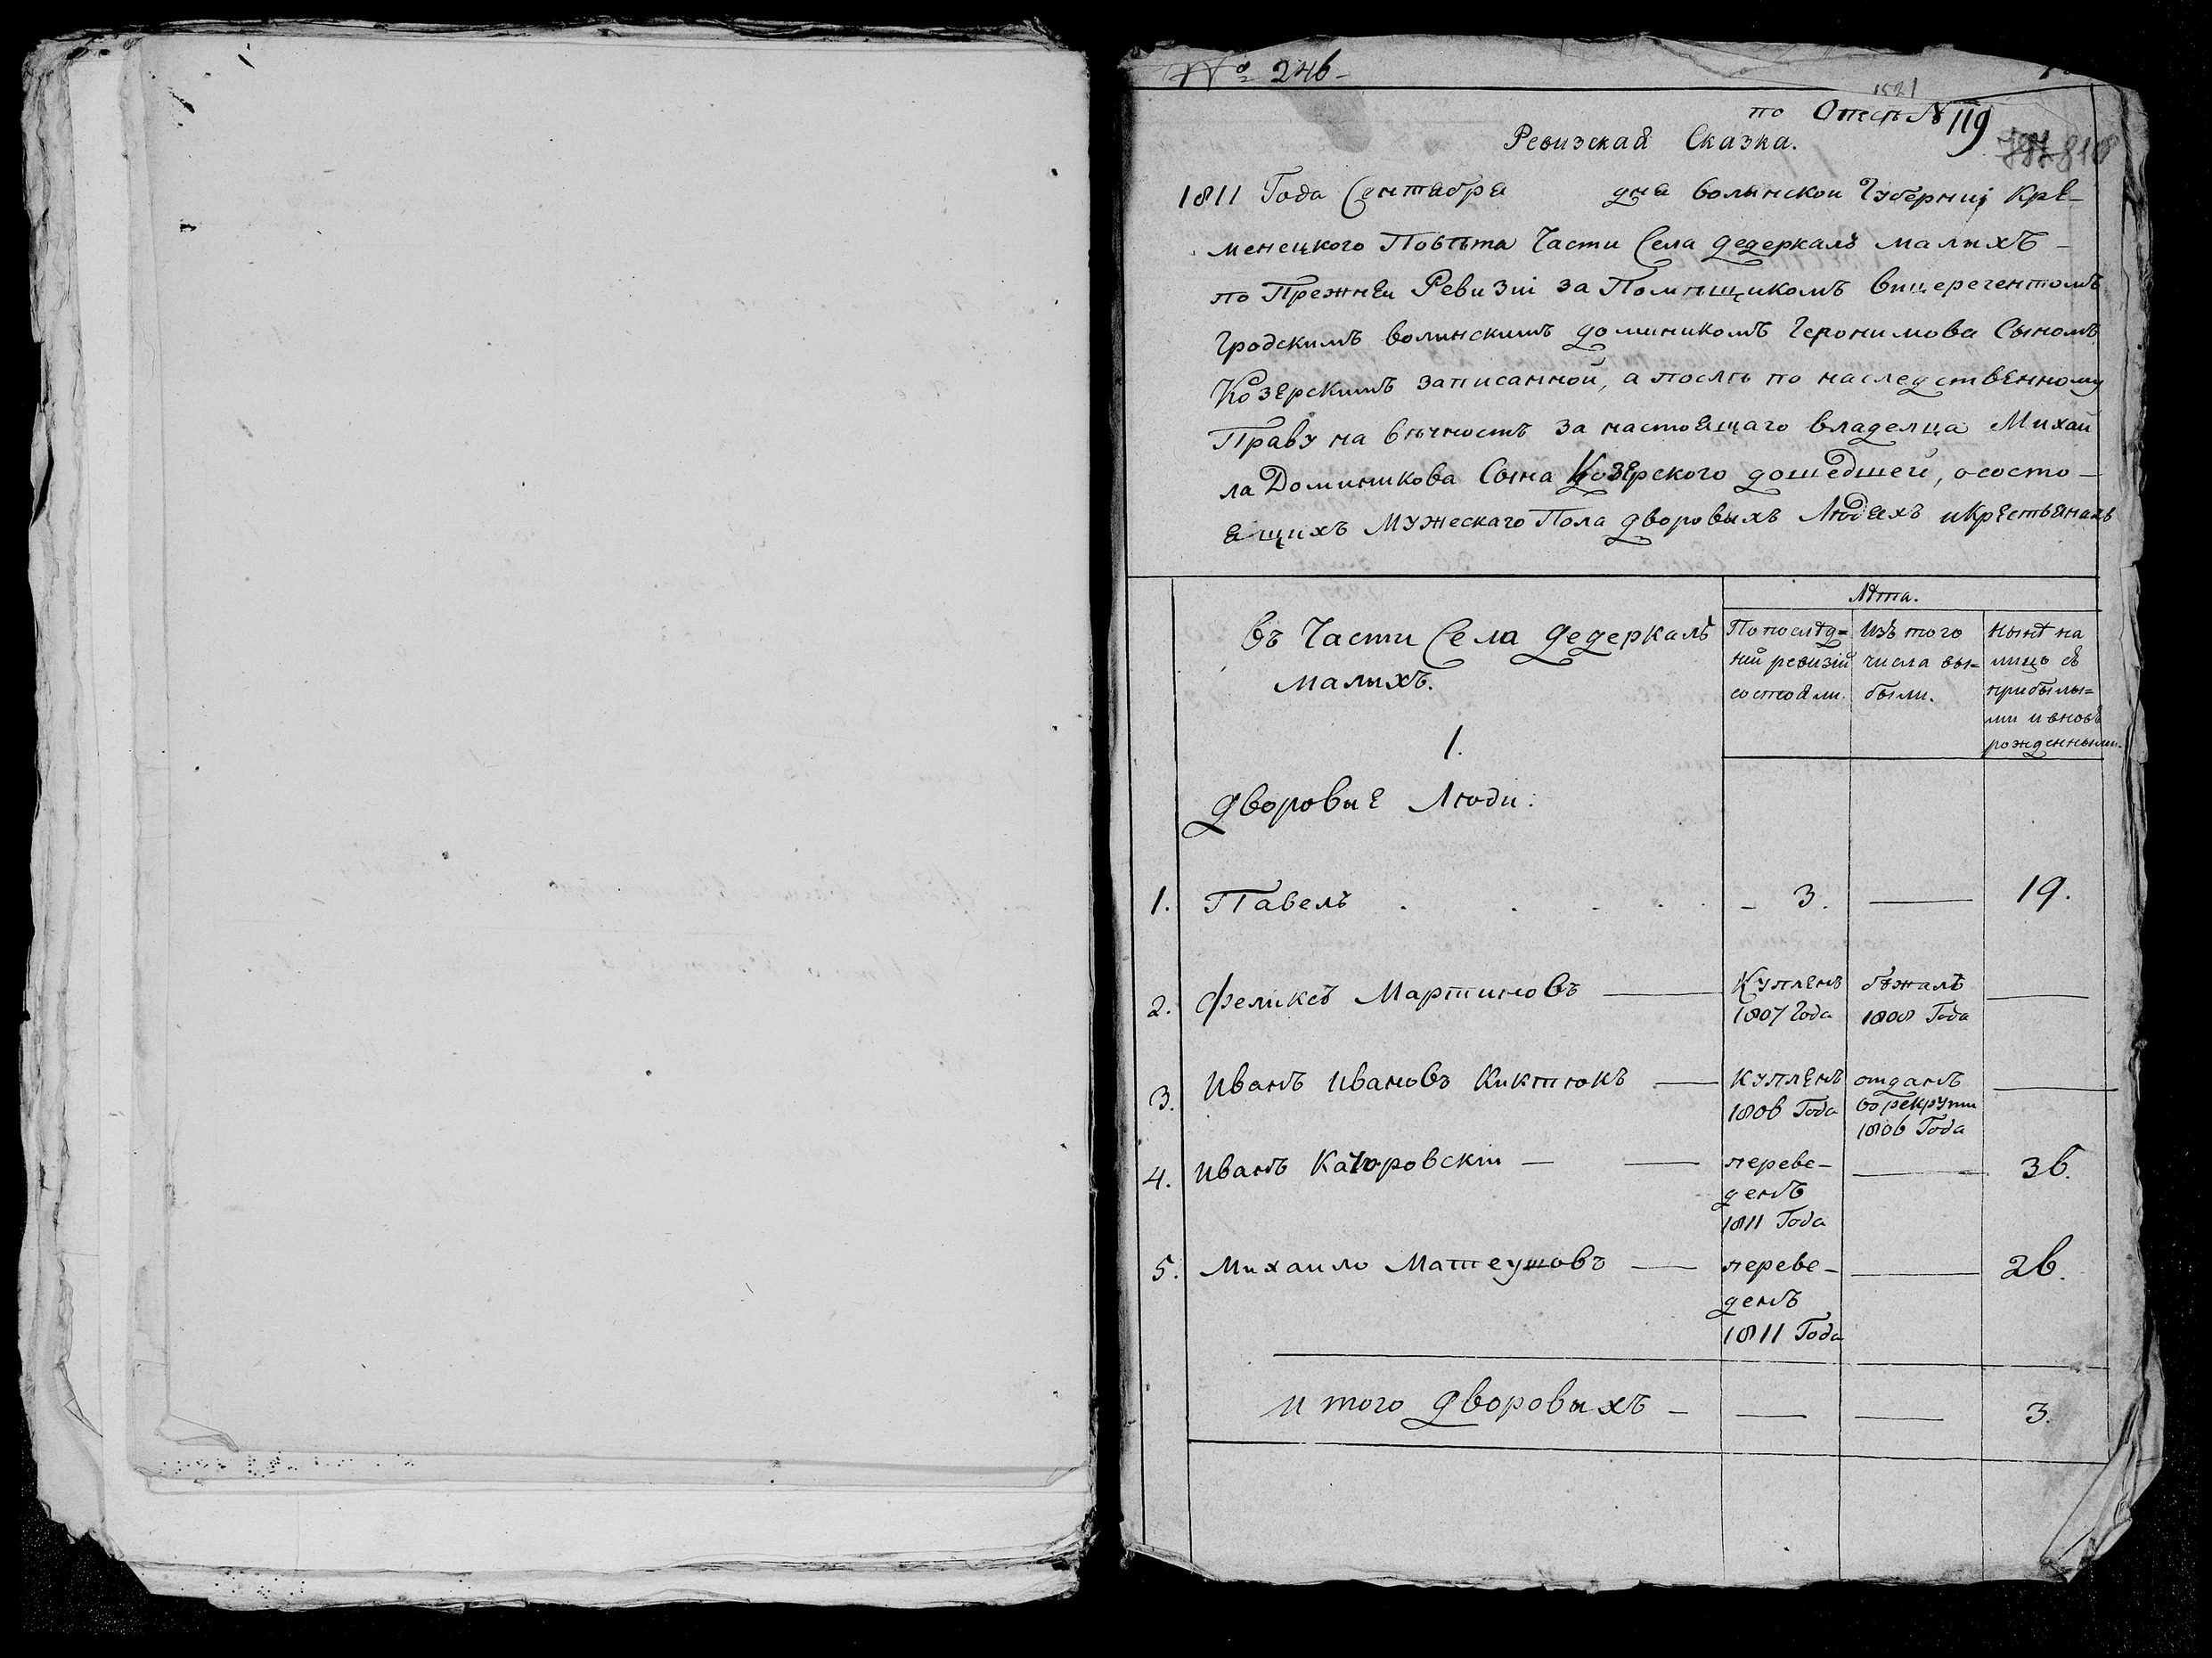 № 246
1521
по Описѣ № 119
818
Ревизская Сказка.
1811 Года Сентабря дня Волынской Губерніи Кре-
менецкого Повѣта Части Села Дедеркалъ малыхъ
по Прежней Ревизіи за Помѣщикомъ Вицерегентомъ
Гродскимъ волинскимъ Доминикомъ Геронимова Сыномъ
Козерскимъ записанной, а послѣ по наследственному
Праву на вѣчность за настоящаго владелца Михай
ла Доминикова Сына Козерского дошедшей, о состо-
ящихъ Мужескаго Пола дворовыхъ Людяхъ и Крестьянахъ
Лѣта.
Въ Части Села Дедеркалъ малыхъ.
По послѣд-
ній ревизіи
состояли.
Изъ того
числа вы-
были.
Нынѣ на
лицо съ
прибылы-
ми и вновь
рожденными.
1.
Дворовые Люди:
1. Павелъ 3. — 19.
2. Феликсъ Мартиновъ — Купленъ 1807 Года бѣжалъ 1808 Года —
3. Иванъ Ивановъ Киктюкъ — купленъ 1806 Года отданъ во рекруты 1806 Года —
4. Иванъ — переве-
денъ
1811 Года — 36.
5. Михаило Матеушовъ — переве-
денъ
1811 Года — 26.
и того Дворовыхъ — — — 3.